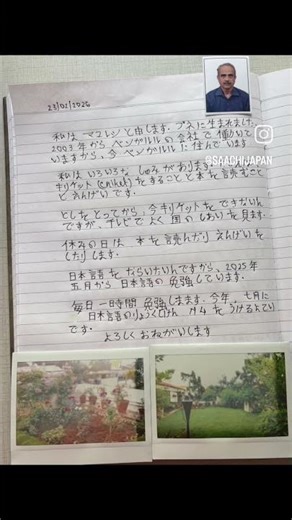 23/02/2026
@SAACHIJAPAN
私は マスレシ と申します。プネに生まれました
2003年から ベンガルルの会社で 働いて
いますから、今 ベンガルルに 住んでいます
私は いろいろな しゅみ があります。
クリケット (cricket) をすることと 本を 読むこと
と えんげい です。
としをとってから、今 クリケットを できないん
ですが、テレビで よく 国の しあいを 見ます。
休みの日は 本を 読んだり えんげいを
したりします。
日本語を ならいたいんですから、2025年
五月から 日本語の 勉強しています。
毎日 一時間 勉強しまます。今年、七月に
日本語の りょうくしけん N4を うけるよてい
です。
よろしく おねがいします